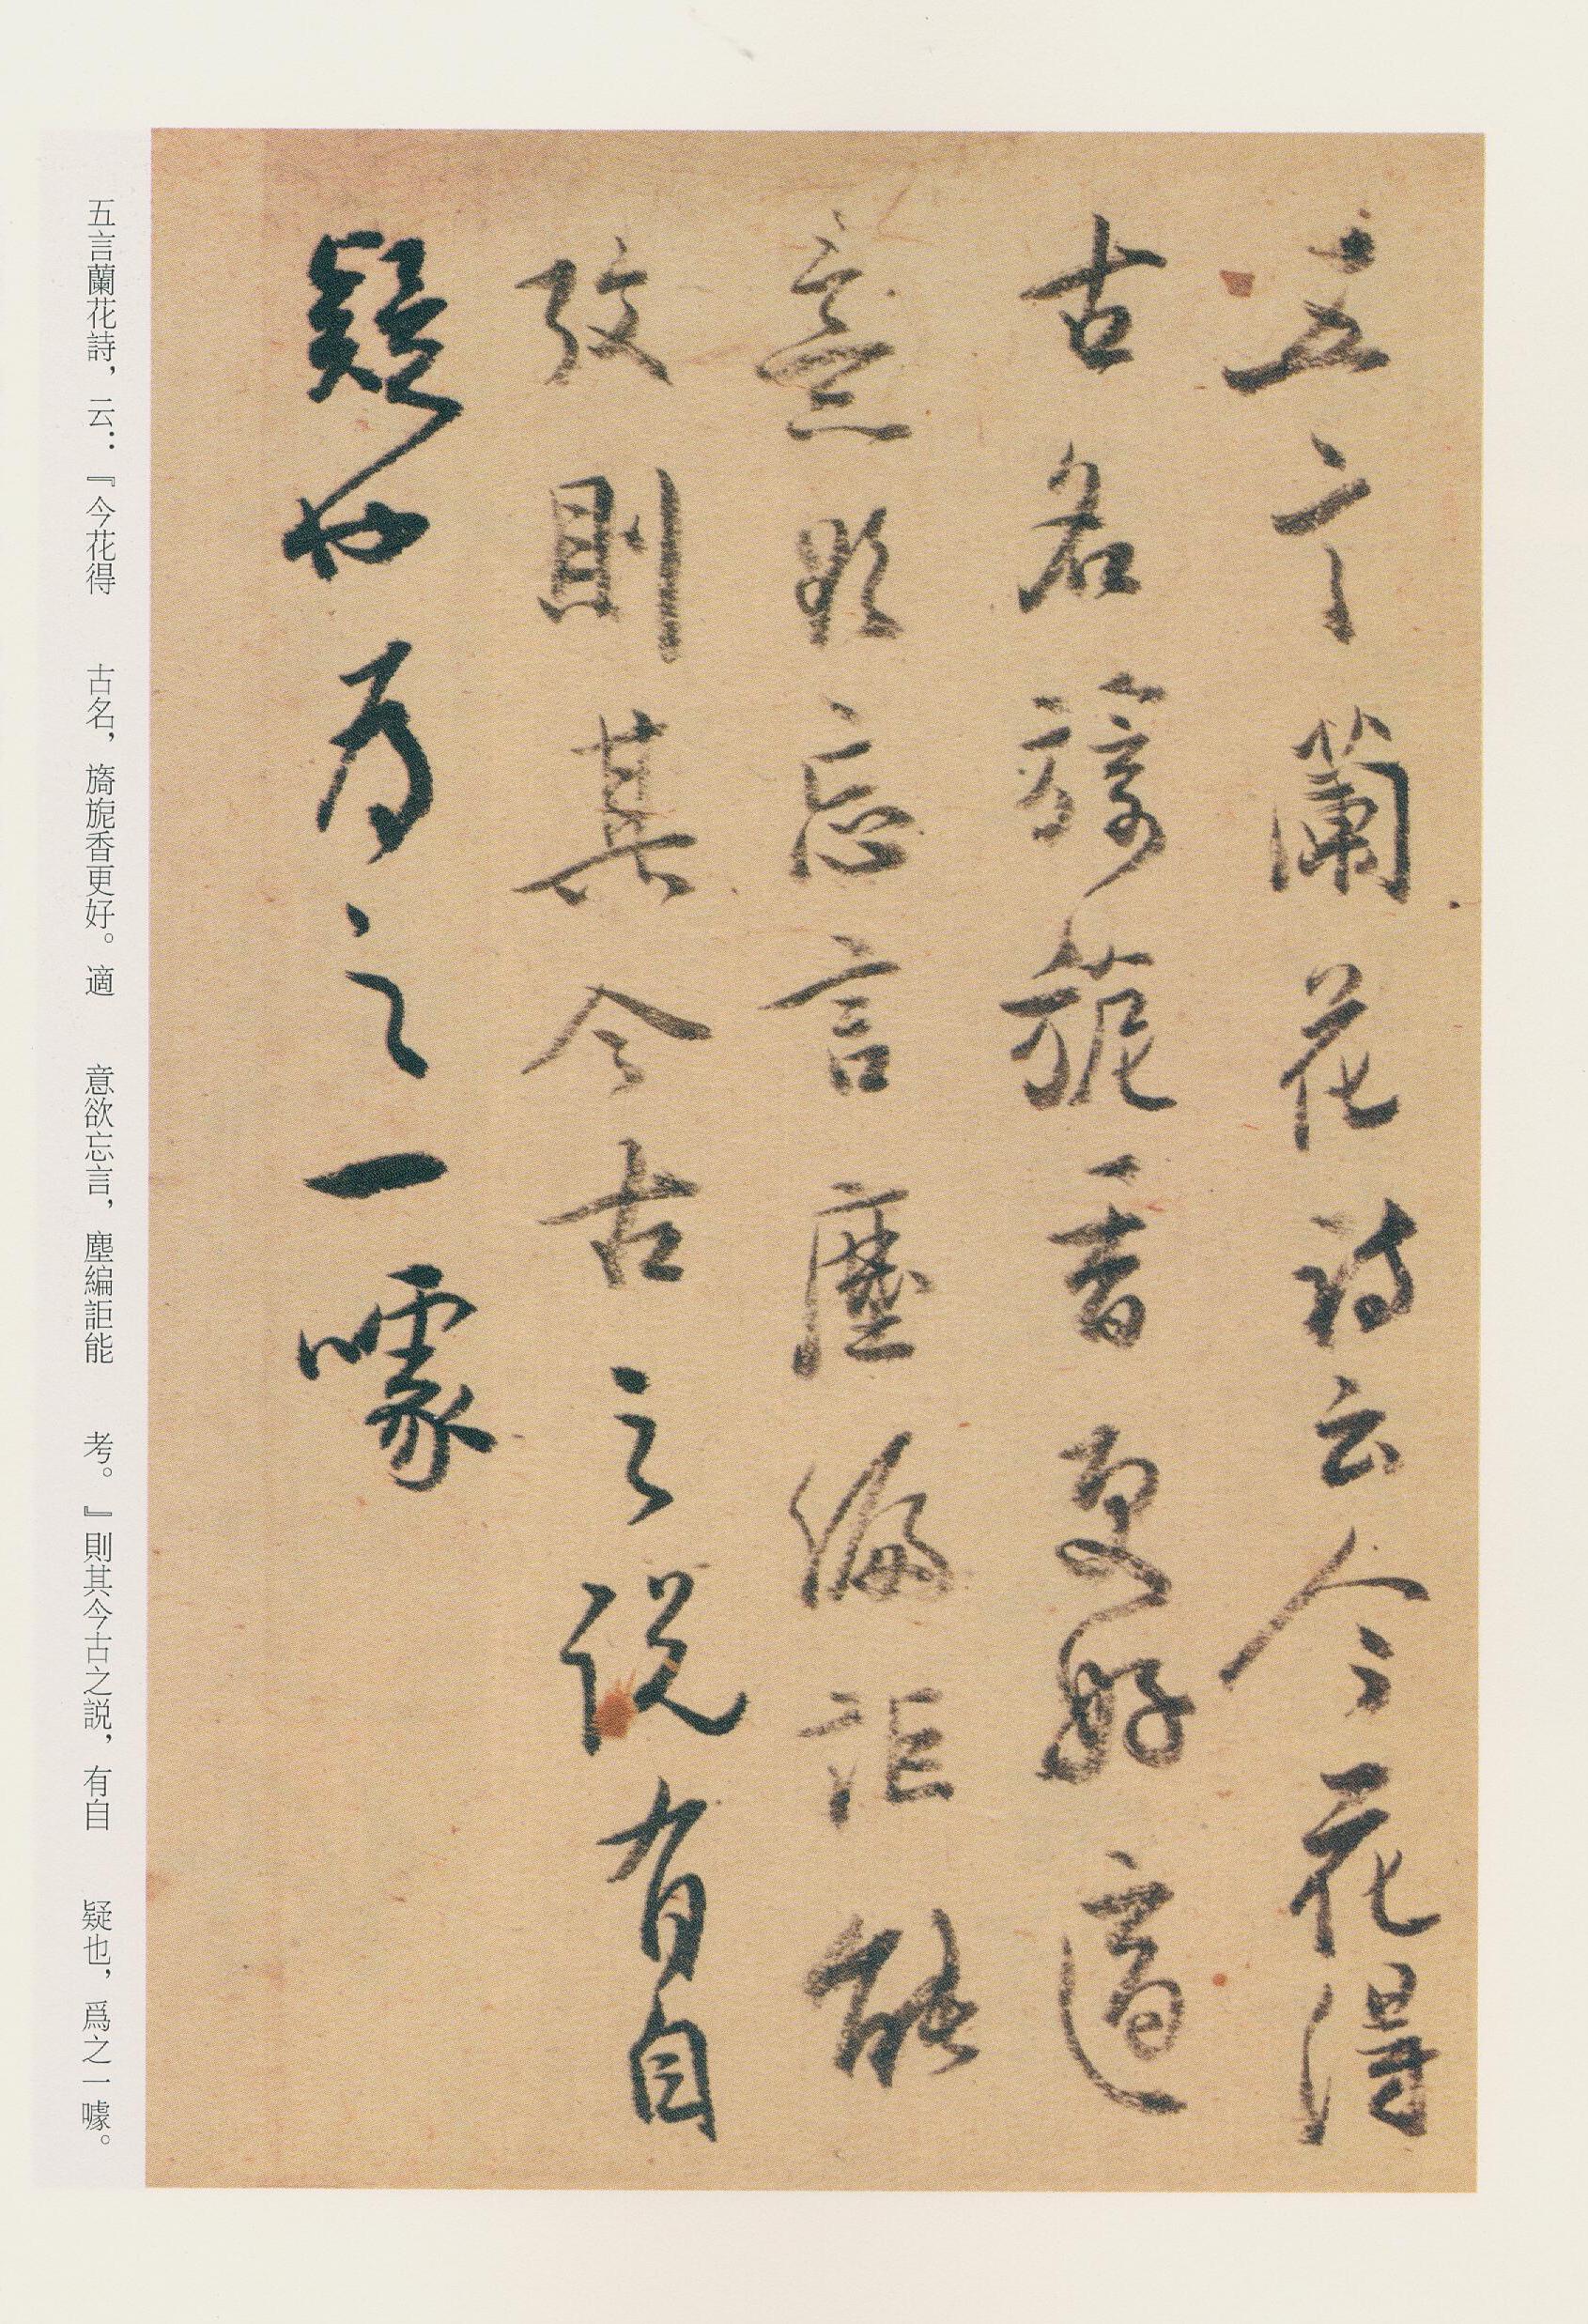 五言蘭花詩云今花得
古名旖旎香更好適
意欲忘言塵編詎能
攷則其今古之說有自
疑也為之一噱
五言蘭花詩，云：『今花得　古名，旖旎香更好。適　意欲忘言，塵編詎能　考。』則其今古之説，有自　疑也，爲之一噱。